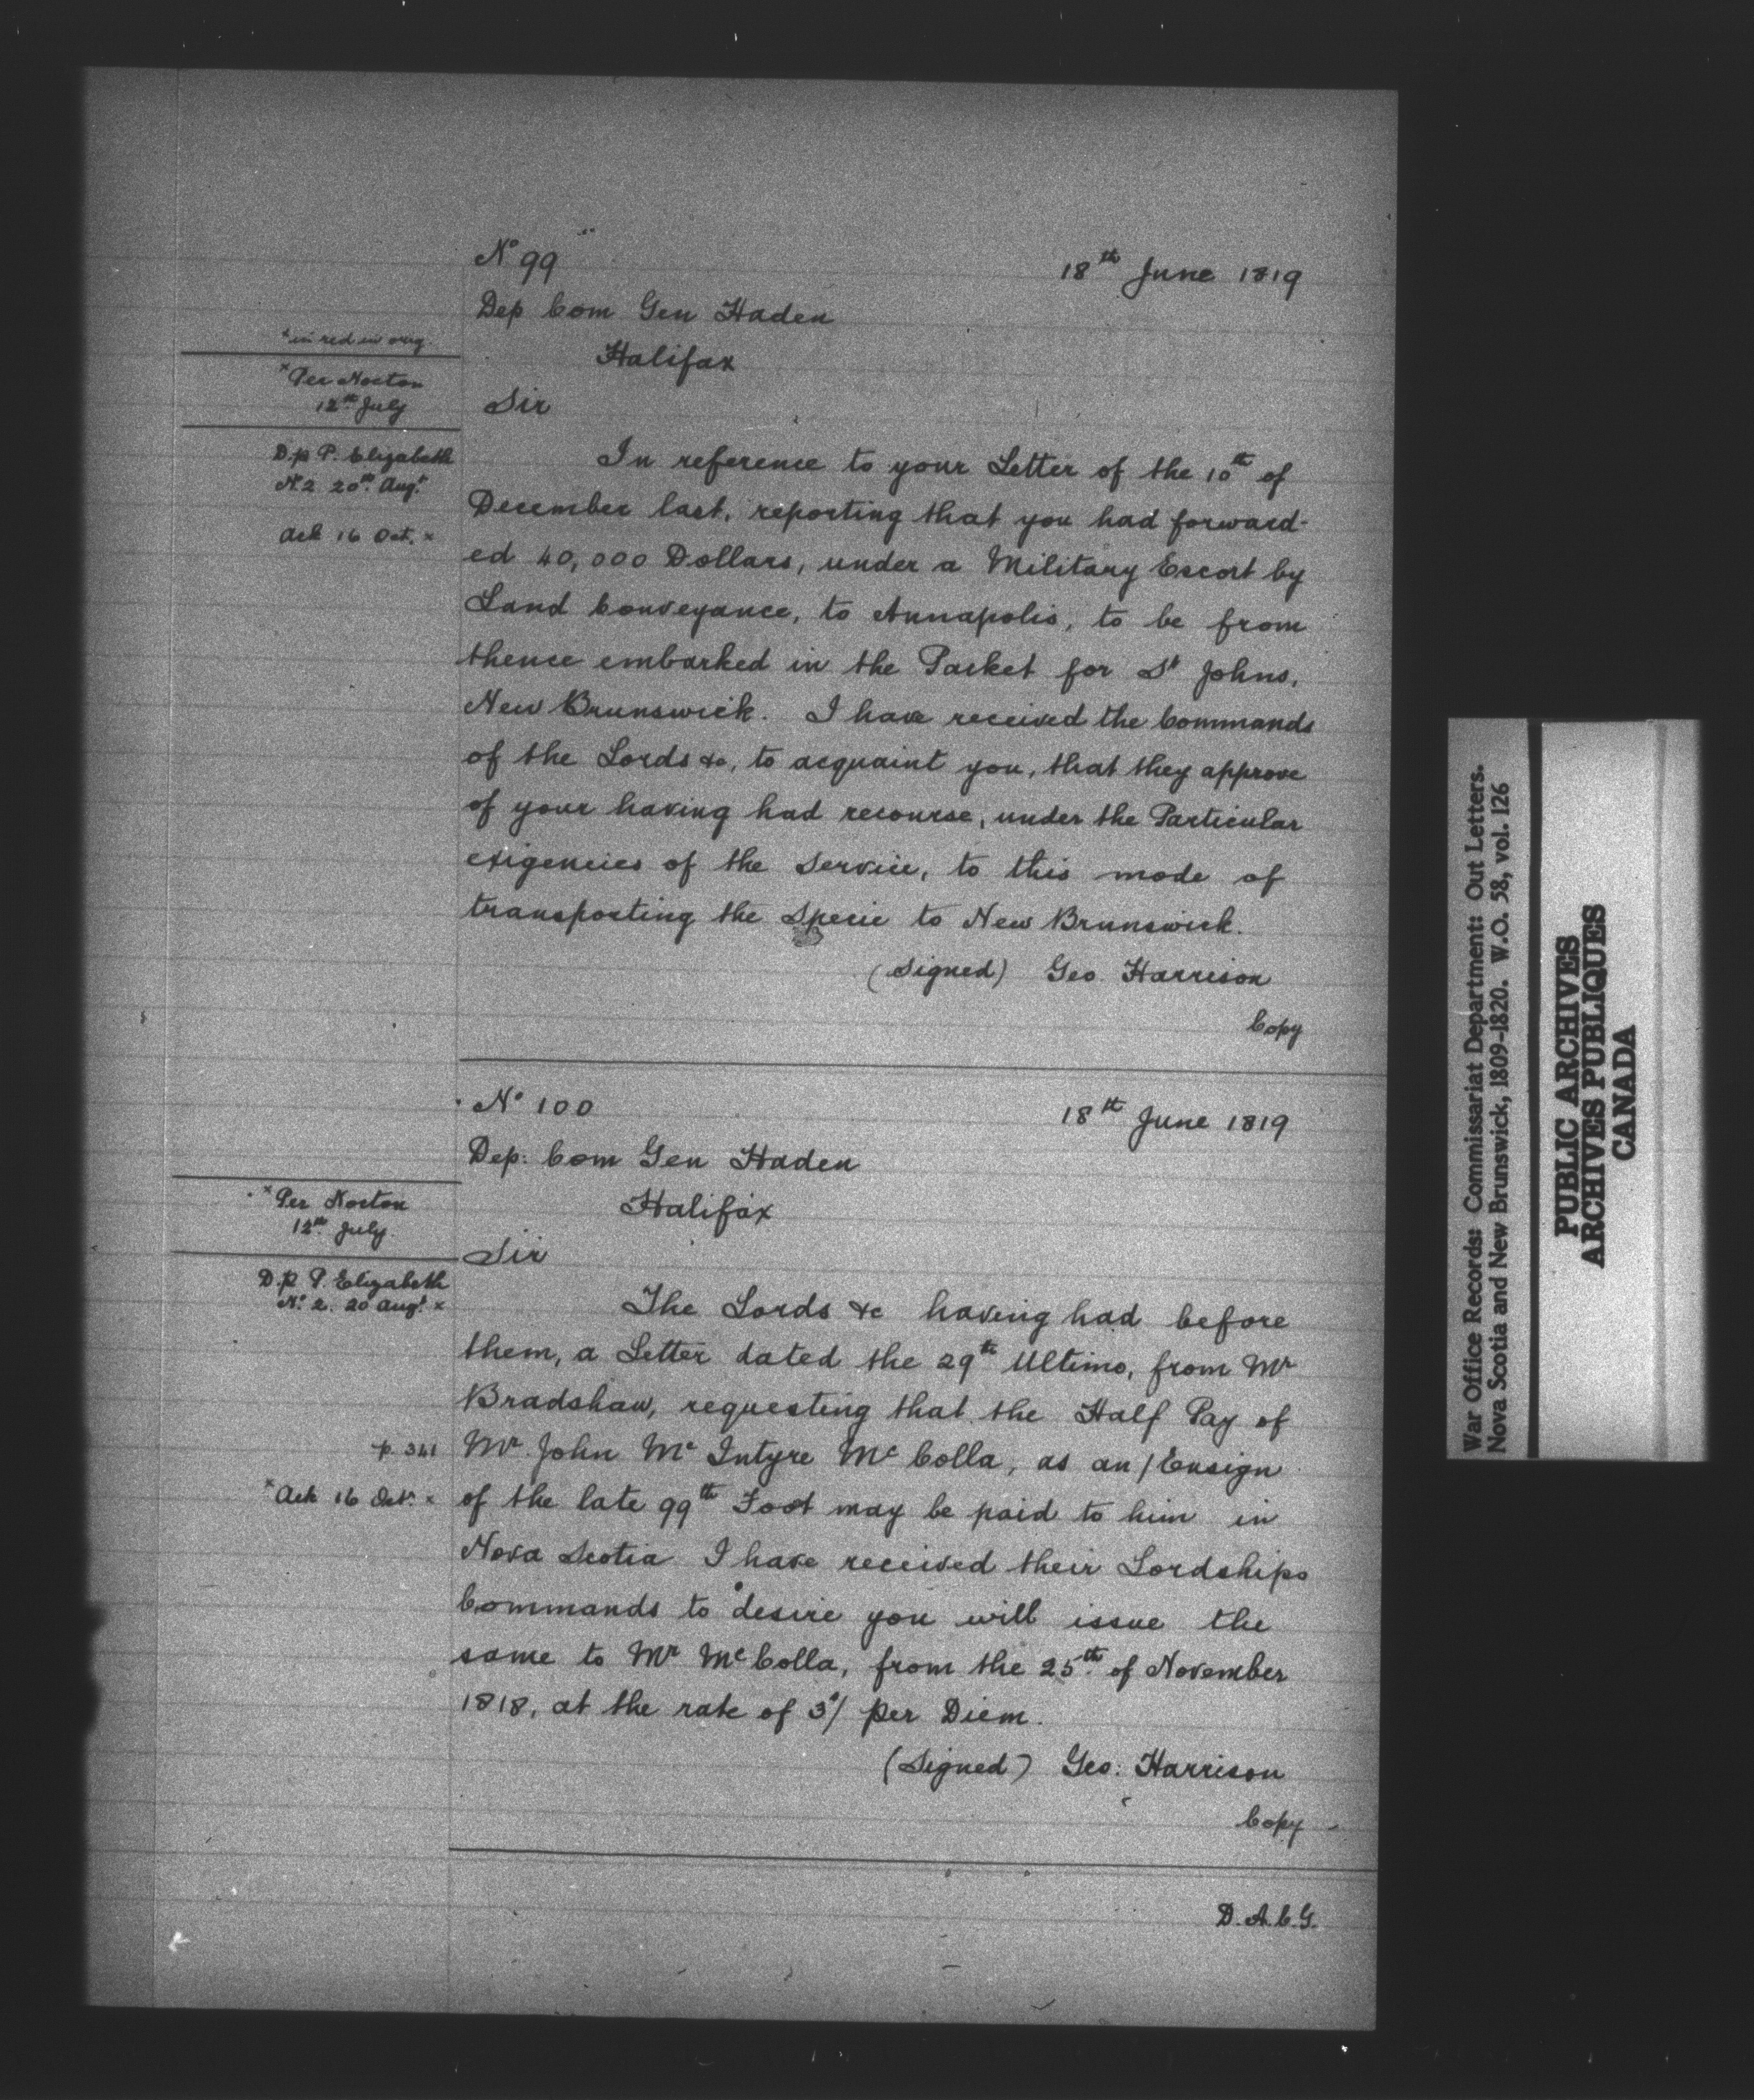 No 99
18th June 1819
Dep Com Gen Haden
Halifax
Sir
x in red in orig.
x Per Norton
12th July
D.p P. Elizabeth
No. 2 20th Augt
Ack 16 Oct. x
In reference to your Letter of the 10th of
December last, reporting that you had forward-
ed 40,000 Dollars, under a Military Escort by
Land Conveyance, to Annapolis, to be from
thence embarked in the Packet for St Johns,
New Brunswick. I have received the Commands
of the Lords &c, to acquaint you, that they approve
of your having had recourse, under the Particular
exigencies of the Service, to this mode of
transporting the Specie to New Brunswick.
(Signed) Geo. Harrison
Copy
No 100
18th June 1819
Dep: Com Gen Haden
Halifax
Sir
x Per Norton
12th July.
D.p P. Elizabeth
No. 2. 20 Augt. x
p. 341
x Ack 16 Oct. x
The Lords &c having had before
them, a Letter dated the 29th Ultimo, from Mr
Bradshaw, requesting that the Half Pay of
Mr John Mc Intyre Mc Colla, as an / Ensign
of the late 99th Foot may be paid to him in
Nova Scotia I have received their Lordships
Commands to desire you will issue the
same to Mr McColla, from the 25th of November
1818, at the rate of 3s/ per Diem.
(Signed) Geo: Harrison
Copy
D.A.C.G.
War Office Records: Commissariat Department: Out Letters.
Nova Scotia and New Brunswick, 1809-1820. W.O. 58, vol. 126
PUBLIC ARCHIVES
ARCHIVES PUBLIQUES
CANADA